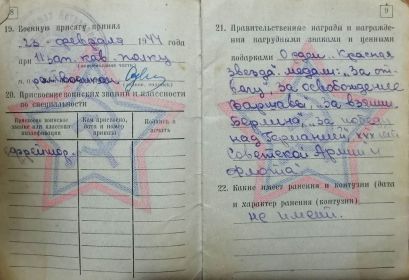 8
19. Военную присягу принял
"23" февраля 1944 года
при 11 зап. кав. полку
(наименование части)
20. Присвоение воинских званий и классности
по специальности
Присвоено воинское
звание или классная
квалификация
Кем присвоено,
дата и номер
приказа
Подпись и
печать
ефрейтор
9
21. Правительственные награды и награждение
нагрудными знаками и ценными
подарками
Орден "Красная
Звезда" медали: "За от-
вагу", "За освобождение
Варшавы", "За взятие
Берлина", "За победу
над Германией", XXX лет
Советской Армии и
Флота
22. Какие имеет ранения и контузии (дата
и характер ранения (контузии)
не имеет.